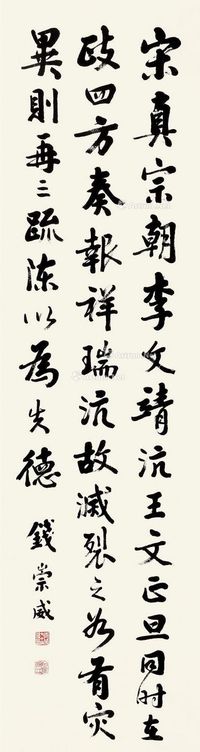 宋真宗朝李文靖沆王文正旦同时在
政四方奏報祥瑞沆故滅裂之如有灾
異則再三疏陳以為失德
錢崇威